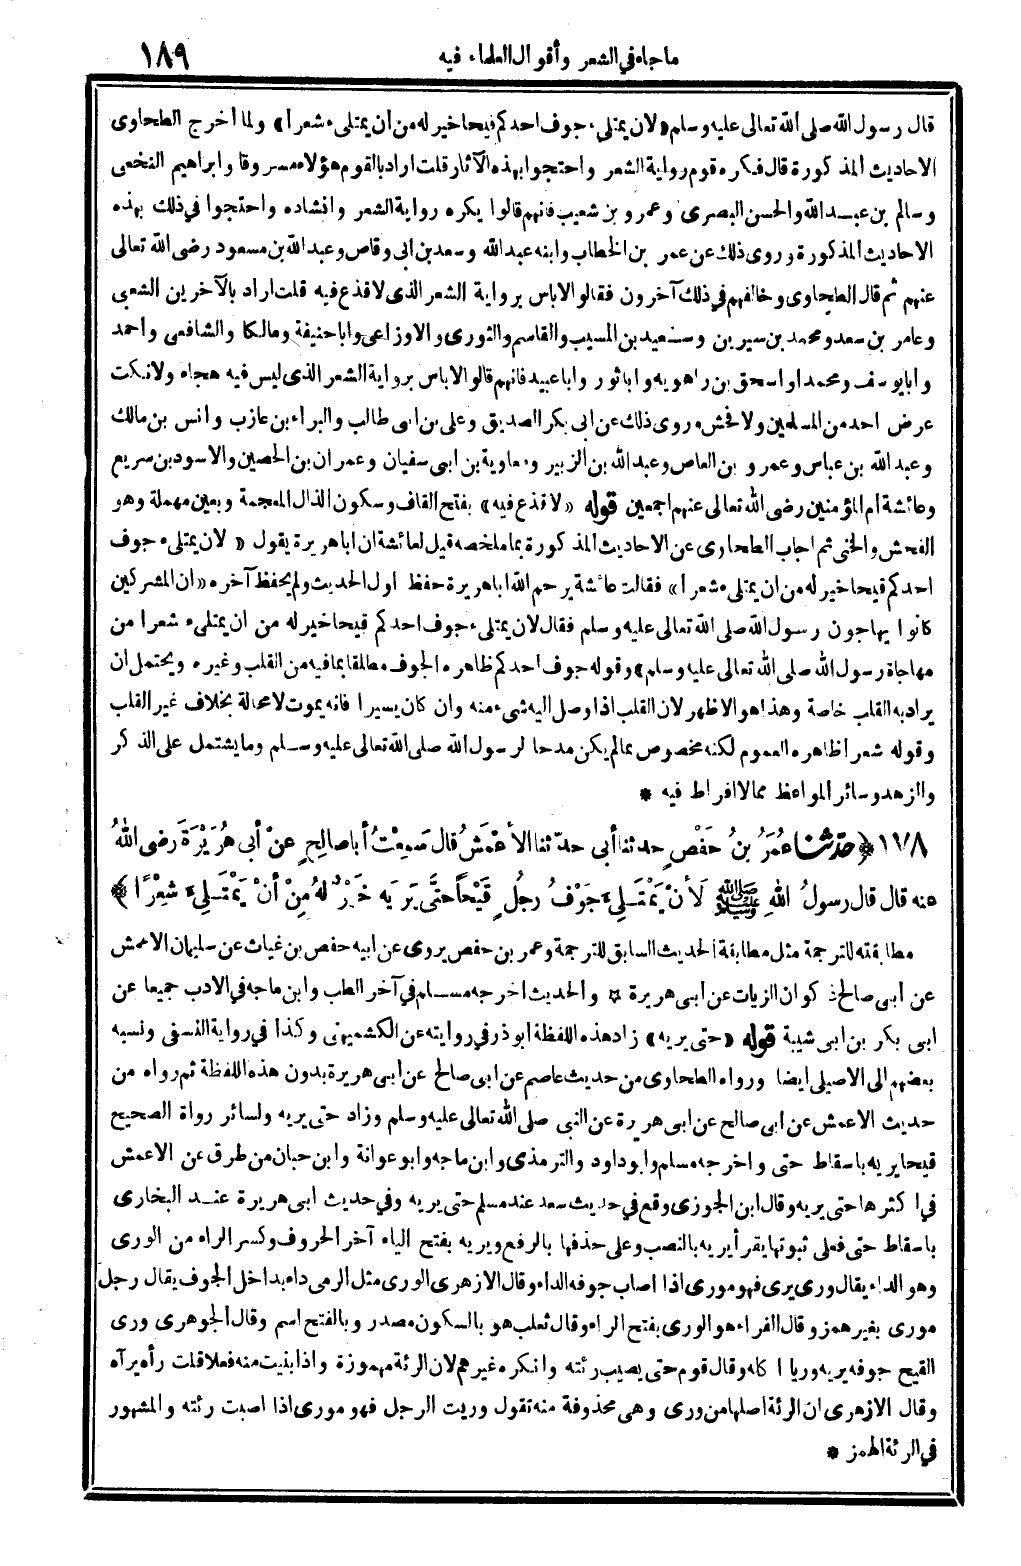 ما جاء في الشعر وأقوال العلماء فيه ١٨٩
قال رسول الله صلى الله تعالى عليه وسلم «لان يمتلىء جوف احدكم قيحا خير له من ان يمتلىء شعرا» ولما أخرج الطحاوى
الاحاديث المذكورة قال فكره قوم رواية الشعر واحتجوا بهذه الآثار قلت اراد بالقوم هؤلاء مسروقا وابراهيم النخعى
وسالم بن عبد الله والحسن البصرى وعمرو بن شعيب فانهم قالوا يكره رواية الشعر وانشاده واحتجوا في ذلك بهذه
الاحاديث المذكورة وروى ذلك عن عمر بن الخطاب وابنه عبد الله وسعد بن ابى وقاص وعبد الله بن مسعود رضى الله تعالى
عنهم ثم قال الطحاوى وخالفهم في ذلك آخرون فقالوا لاباس برواية الشعر الذى لا قذع فيه قلت اراد بالآخرين الشعبى
وعامر بن سعد ومحمد بن سيرين وسعيد بن المسيب والقاسم والثورى والاوزاعى وابا حنيفة ومالكا والشافعى واحمد
وابا يوسف ومحمدا واسحق بن راهويه وابا ثور وابا عبيد فانهم قالوا لاباس برواية الشعر الذى ليس فيه هجاء ولا نكت
عرض احد من المسلمين ولا فحش وروى ذلك عن ابى بكر الصديق وعلى بن ابى طالب والبراء بن عازب وانس بن مالك
وعبد الله بن عباس وعمرو بن العاص وعبد الله بن الزبير ومعاوية بن ابى سفيان وعمران بن الحصين والاسود بن سريع
وعائشة ام المؤمنين رضى الله تعالى عنهم اجمعين قوله «لا قذع فيه» بفتح القاف وسكون الذال المعجمة وبعين مهملة وهو
الفحش والخنى ثم اجاب الطحاوى عن الاحاديث المذكورة بما ملخصه قيل لعائشة ان ابا هريرة يقول «لان يمتلىء جوف
احدكم قيحا خير له من ان يمتلىء شعرا» فقالت عائشة يرحم الله ابا هريرة حفظ اول الحديث ولم يحفظ آخره «ان المشركين
كانوا يهاجون رسول الله صلى الله تعالى عليه وسلم فقال لان يمتلىء جوف احدكم قيحا خير له من ان يمتلىء شعرا من
مهاجاة رسول الله صلى الله تعالى عليه وسلم» وقوله جوف احدكم ظاهره الجوف مطلقا بما فيه من القلب وغيره ويحتمل ان
يراد به القلب خاصة وهذا هو الاظهر لان القلب اذا وصل اليه شىء منه وان كان يسيرا فانه يموت لا محالة بخلاف غير القلب
وقوله شعرا ظاهره العموم لكنه مخصوص بما لم يكن مدحا لرسول الله صلى الله تعالى عليه وسلم وما يشتمل على الذكر
والزهد وسائر المواعظ مما لا افراط فيه *
١١٧٨ ﴿ حدّثنا عُمَرُ بنُ حَفْصٍ حدثنا أبى حدّثنا الأعْمَشُ قال سَمِعْتُ أبا صالِحٍ عنْ أبى هُرَيْرَةَ رضى اللهُ
عنه قال قال رسولُ اللهِ ﷺ لَأنْ يَمْتَلِىءَ جَوْفُ رجُلٍ قَيْحاً حتَّى يَرِيَه خَيْرٌ لهُ مِنْ أنْ يَمْتَلِىءَ شِعْرًا ﴾
مطابقته للترجمة مثل مطابقة الحديث السابق للترجمة وعمر بن حفص يروى عن ابيه حفص بن غياث عن سليمان الاعمش
عن أبى صالح ذكوان الزيات عن ابى هريرة * والحديث اخرجه مسلم في آخر الطب وابن ماجه في الادب جميعا عن
ابى بكر بن ابى شيبة قوله «حتى يريه» زاد هذه اللفظة ابو ذر في روايته عن الكشميهنى وكذا في رواية النسفى ونسبه
بعضهم الى الاصيلى ايضا ورواه الطحاوى من حديث عاصم عن ابى صالح عن ابى هريرة بدون هذه اللفظة ثم رواه من
حديث الاعمش عن ابى صالح عن ابى هريرة عن النبى صلى الله تعالى عليه وسلم وزاد حتى يريه ولسائر رواة الصحيح
قيحا يريه باسقاط حتى واخرجه مسلم وابو داود والترمذى وابن ماجه وابو عوانة وابن حبان من طرق عن الاعمش
في اكثرها حتى يريه وقال ابن الجوزى وقع في حديث سعد عند مسلم حتى يريه وفي حديث ابى هريرة عند البخارى
باسقاط حتى فعلى ثبوتها يقرأ يريه بالنصب وعلى حذفها بالرفع ويريه بفتح الياء آخر الحروف وكسر الراء من الورى
وهو الداء يقال ورى يرى فهو مورى اذا اصاب جوفه الداء وقال الازهرى الورى مثل الرمى داء بداخل الجوف يقال رجل
مورى بغير همز وقال الفراء هو الورى بفتح الراء وقال ثعلب هو بالسكون مصدر وبالفتح اسم وقال الجوهرى ورى
القيح جوفه يريه وريا اكله وقال قوم حتى يصيب رئته وانكره غيرهم لان الرئة مهموزة واذا بنيت منه فعلا قلت رأه يرآه
وقال الازهرى ان الرئة اصلها من ورى وهى محذوفة منه تقول وريت الرجل فهو مورى اذا اصبت رئته والمشهور
في الرئة الهمز *